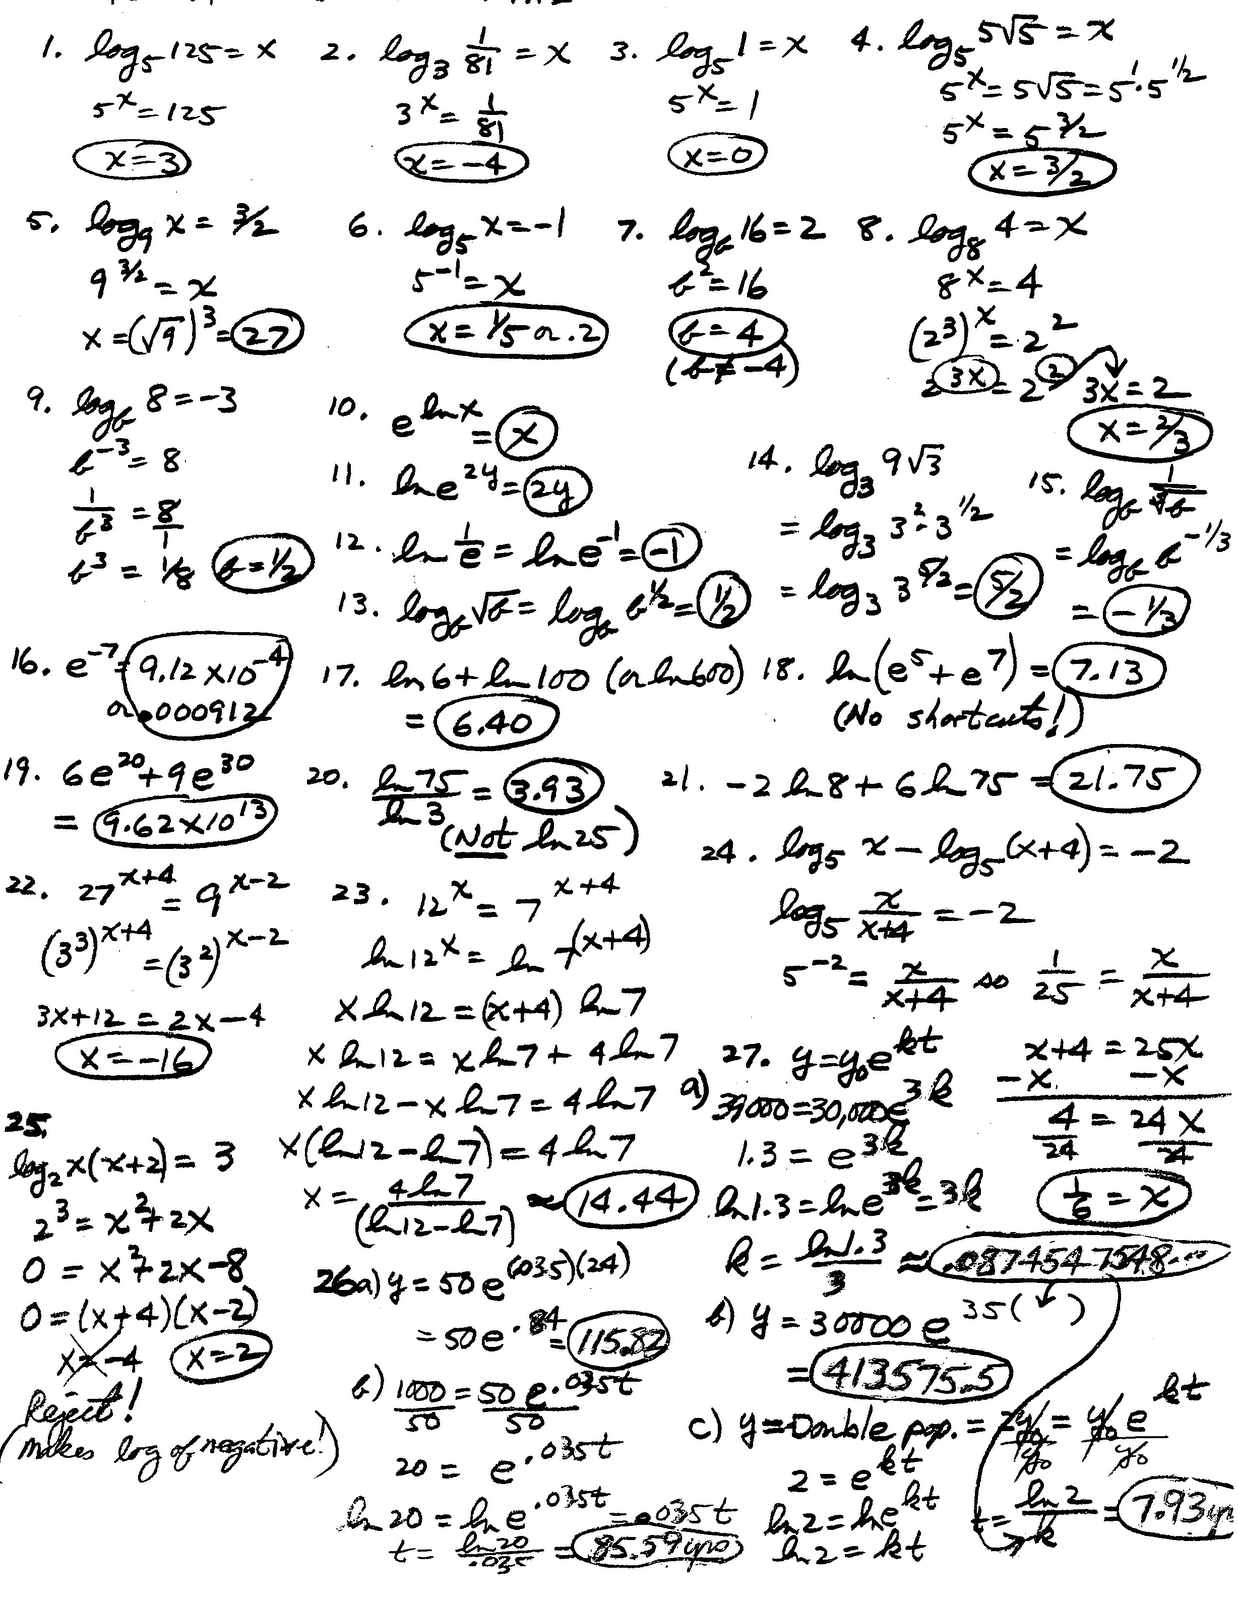 1. log₅125 = x
5^x = 125
x = 3
2. log₃ 1/81 = x
3^x = 1/81
x = -4
3. log₅1 = x
5^x = 1
x = 0
4. log₅ 5√5 = x
5^x = 5√5 = 5^1·5^1/2
5^x = 5^3/2
x = 3/2
5. log₉ x = 3/2
9^3/2 = x
x = (√9)^3 = 27
6. log₅ x = -1
5^-1 = x
x = 1/5 or .2
7. log_b 16 = 2
b^2 = 16
b = 4
(b ≠ -4)
8. log₈ 4 = x
8^x = 4
(2^3)^x = 2^2
2^3x = 2^2 3x = 2
x = 2/3
9. log_b 8 = -3
b^-3 = 8
1/b^3 = 8/1
b^3 = 1/8 b = 1/2
10. e^lnx
= x
11. ln e^2y = 2y
12. ln 1/e = ln e^-1 = -1
13. log_b √b = log_b b^1/2 = 1/2
14. log₃ 9√3
= log₃ 3^2·3^1/2
= log₃ 3^5/2 = 5/2
15. log_b 1/∛b
= log_b b^-1/3
= -1/3
16. e^-7 = 9.12 x 10^-4
or .000912
17. ln6 + ln100 (or ln600)
= 6.40
18. ln(e^5 + e^7) = 7.13
(No shortcuts!)
19. 6e^20 + 9e^30
= 9.62 x 10^13
20. ln75/ln3 = 3.93
(Not ln25)
21. -2 ln8 + 6 ln75 = 21.75
22. 27^x+4 = 9^x-2
(3^3)^x+4 = (3^2)^x-2
3x+12 = 2x-4
x = -16
23. 12^x = 7^x+4
ln12^x = ln 7^(x+4)
x ln12 = (x+4) ln7
x ln12 = x ln7 + 4 ln7
x ln12 - x ln7 = 4 ln7
x(ln12 - ln7) = 4 ln7
x = 4 ln7/(ln12 - ln7) ≈ 14.44
24. log₅ x - log₅(x+4) = -2
log₅ x/x+4 = -2
5^-2 = x/x+4 so 1/25 = x/x+4
x+4 = 25x
-x -x
4/24 = 24x/24
1/6 = x
25.
log₂ x(x+2) = 3
2^3 = x^2 + 2x
0 = x^2 + 2x - 8
0 = (x+4)(x-2)
x = -4 x = 2
Reject!
(makes log of negative!)
26 a) y = 50 e^(.035)(24)
= 50 e^.84 = 115.82
b) 1000/50 = 50 e^.035t/50
20 = e^.035t
ln 20 = ln e^.035t = .035t
t = ln20/.035 = 85.59 yrs
27. y = y₀e^kt
a) 39000 = 30,000e^3k
1.3 = e^3k
ln1.3 = ln e^3k = 3k
k = ln1.3/3 ≈ .0874547548...
b) y = 30000 e^35( )
= 413575.5
c) y = Double pop. = 2y₀/y₀ = y₀ e^kt/y₀
2 = e^kt
ln2 = ln e^kt
ln2 = kt
t = ln2/k = 7.93 yr